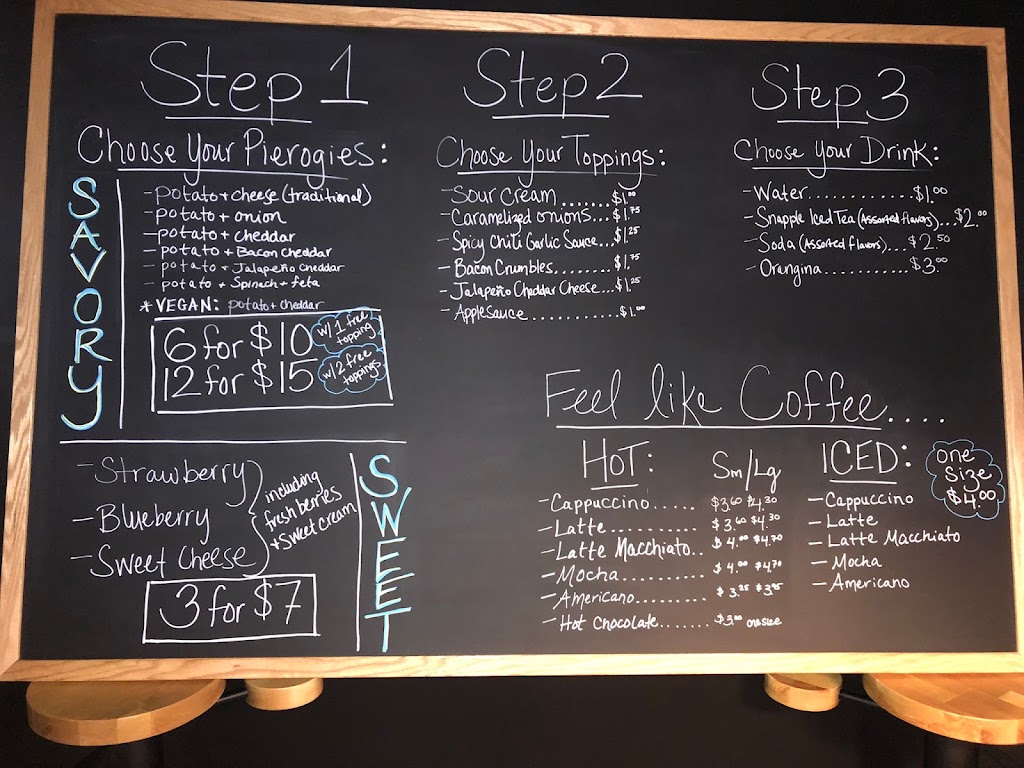 Step 1
Choose Your Pierogies:
SAVORY
- Potato + Cheese (traditional)
- Potato + Onion
- Potato + Cheddar
- Potato + Bacon Cheddar
- Potato + Jalapeño Cheddar
- Potato + Spinach + feta
* VEGAN: Potato + Cheddar
6 for $10
w/ 1 free
topping
12 for $15
w/ 2 free
toppings
- Strawberry
- Blueberry
- Sweet Cheese
including
fresh berries
+ sweet cream
SWEET
3 for $7
Step 2
Choose Your Toppings:
- Sour Cream.......$1.00
- Caramelized onions...$1.75
- Spicy Chili Garlic Sauce...$1.25
- Bacon Crumbles........$1.75
- Jalapeño Cheddar Cheese...$1.25
- Applesauce............$1.00
Step 3
Choose Your Drink:
- Water............$1.00
- Snapple Iced Tea (Assorted flavors)...$2.00
- Soda (Assorted flavors)...$2.50
- Orangina............$3.00
Feel like Coffee....
HOT: Sm/Lg
- Cappuccino..... $3.60 $4.30
- Latte........... $3.60 $4.30
- Latte Macchiato.. $4.00 $4.70
- Mocha.......... $4.00 $4.70
- Americano......... $3.25 $3.95
- Hot Chocolate....... $3.00 one size
ICED:
one
Size
$4.00
- Cappuccino
- Latte
- Latte Macchiato
- Mocha
- Americano